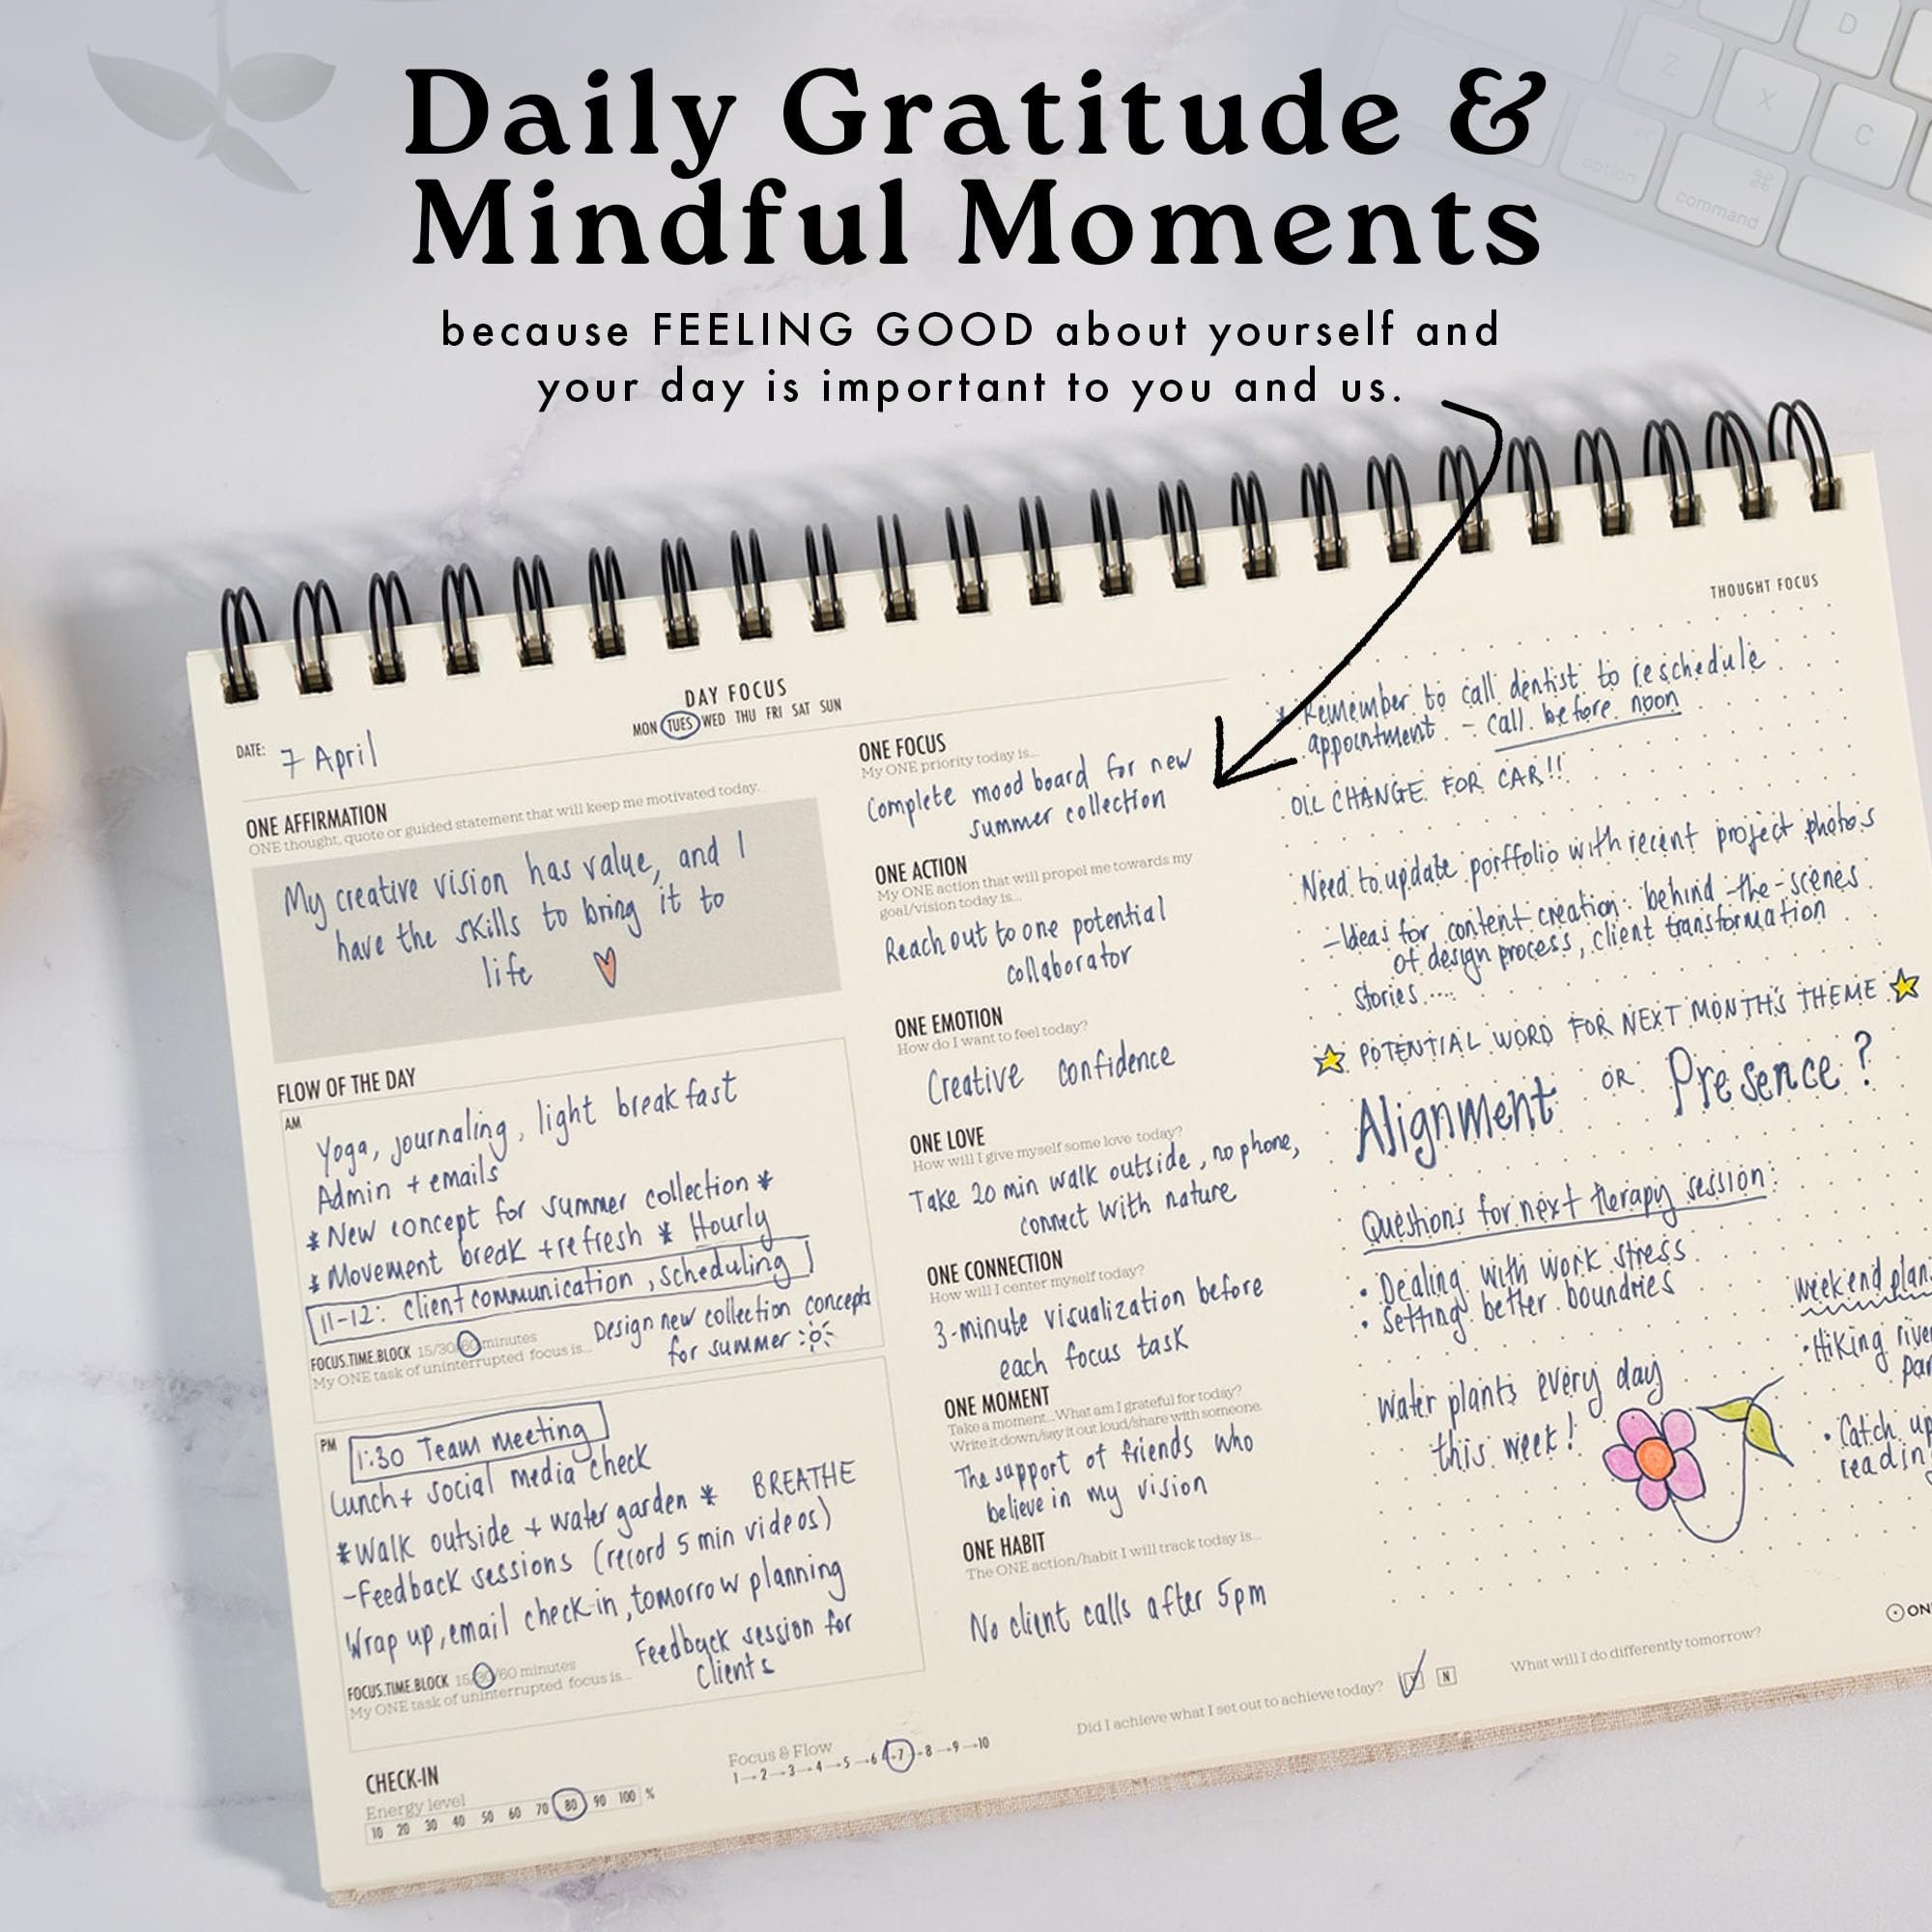 Daily Gratitude &
Mindful Moments
because FEELING GOOD about yourself and
your day is important to you and us.
D
Z
X
C
option
⌘
command
DAY FOCUS
DATE: 7 April
MON TUES WED THU FRI SAT SUN
ONE AFFIRMATION
ONE thought, quote or guided statement that will keep me motivated today.
My creative vision has value, and I
have the skills to bring it to
life
FLOW OF THE DAY
AM
Yoga, journaling, light breakfast
Admin + emails
* New concept for summer collection *
* Movement break + refresh * Hourly
11-12: Client communication, scheduling
FOCUS.TIME.BLOCK 15/30/60 minutes
My ONE task of uninterrupted focus is...
Design new collection concepts
for summer
PM
1:30 Team meeting
Lunch + social media check
* Walk outside + water garden * BREATHE
- Feedback sessions (record 5 min videos)
Wrap up, email check-in, tomorrow planning
FOCUS.TIME.BLOCK 15/30/60 minutes
My ONE task of uninterrupted focus is...
Feedback session for
clients
ONE FOCUS
My ONE priority today is...
Complete mood board for new
summer collection
ONE ACTION
My ONE action that will propel me towards my
goal/vision today is...
Reach out to one potential
collaborator
ONE EMOTION
How do I want to feel today?
Creative confidence
ONE LOVE
How will I give myself some love today?
Take 20 min walk outside, no phone,
connect with nature
ONE CONNECTION
How will I center myself today?
3-minute visualization before
each focus task
ONE MOMENT
Take a moment...What am I grateful for today?
Write it down/say it out loud/share with someone.
The support of friends who
believe in my vision
ONE HABIT
The ONE action/habit I will track today is...
No client calls after 5pm
THOUGHT FOCUS
* Remember to call dentist to reschedule
appointment. - call before noon
OIL CHANGE FOR CAR!!
Need to update porffolio with recent project photos
- Ideas for content creation: behind-the-scenes
of design process, client transformation
stories.....
POTENTIAL WORD FOR NEXT MONTH'S THEME
Alignment OR Presence?
Questions for next therapy session:
• Dealing with work stress
• Setting better boundries
Water plants every day
this week!
weekend plan
• Hiking river
par
• Catch up
readin
CHECK-IN
Energy level
10 20 30 40 50 60 70 80 90 100 %
Focus & Flow
1→2→3→4→5→6→7→8→9→10
Did I achieve what I set out to achieve today? Y N
What will I do differently tomorrow?
ON